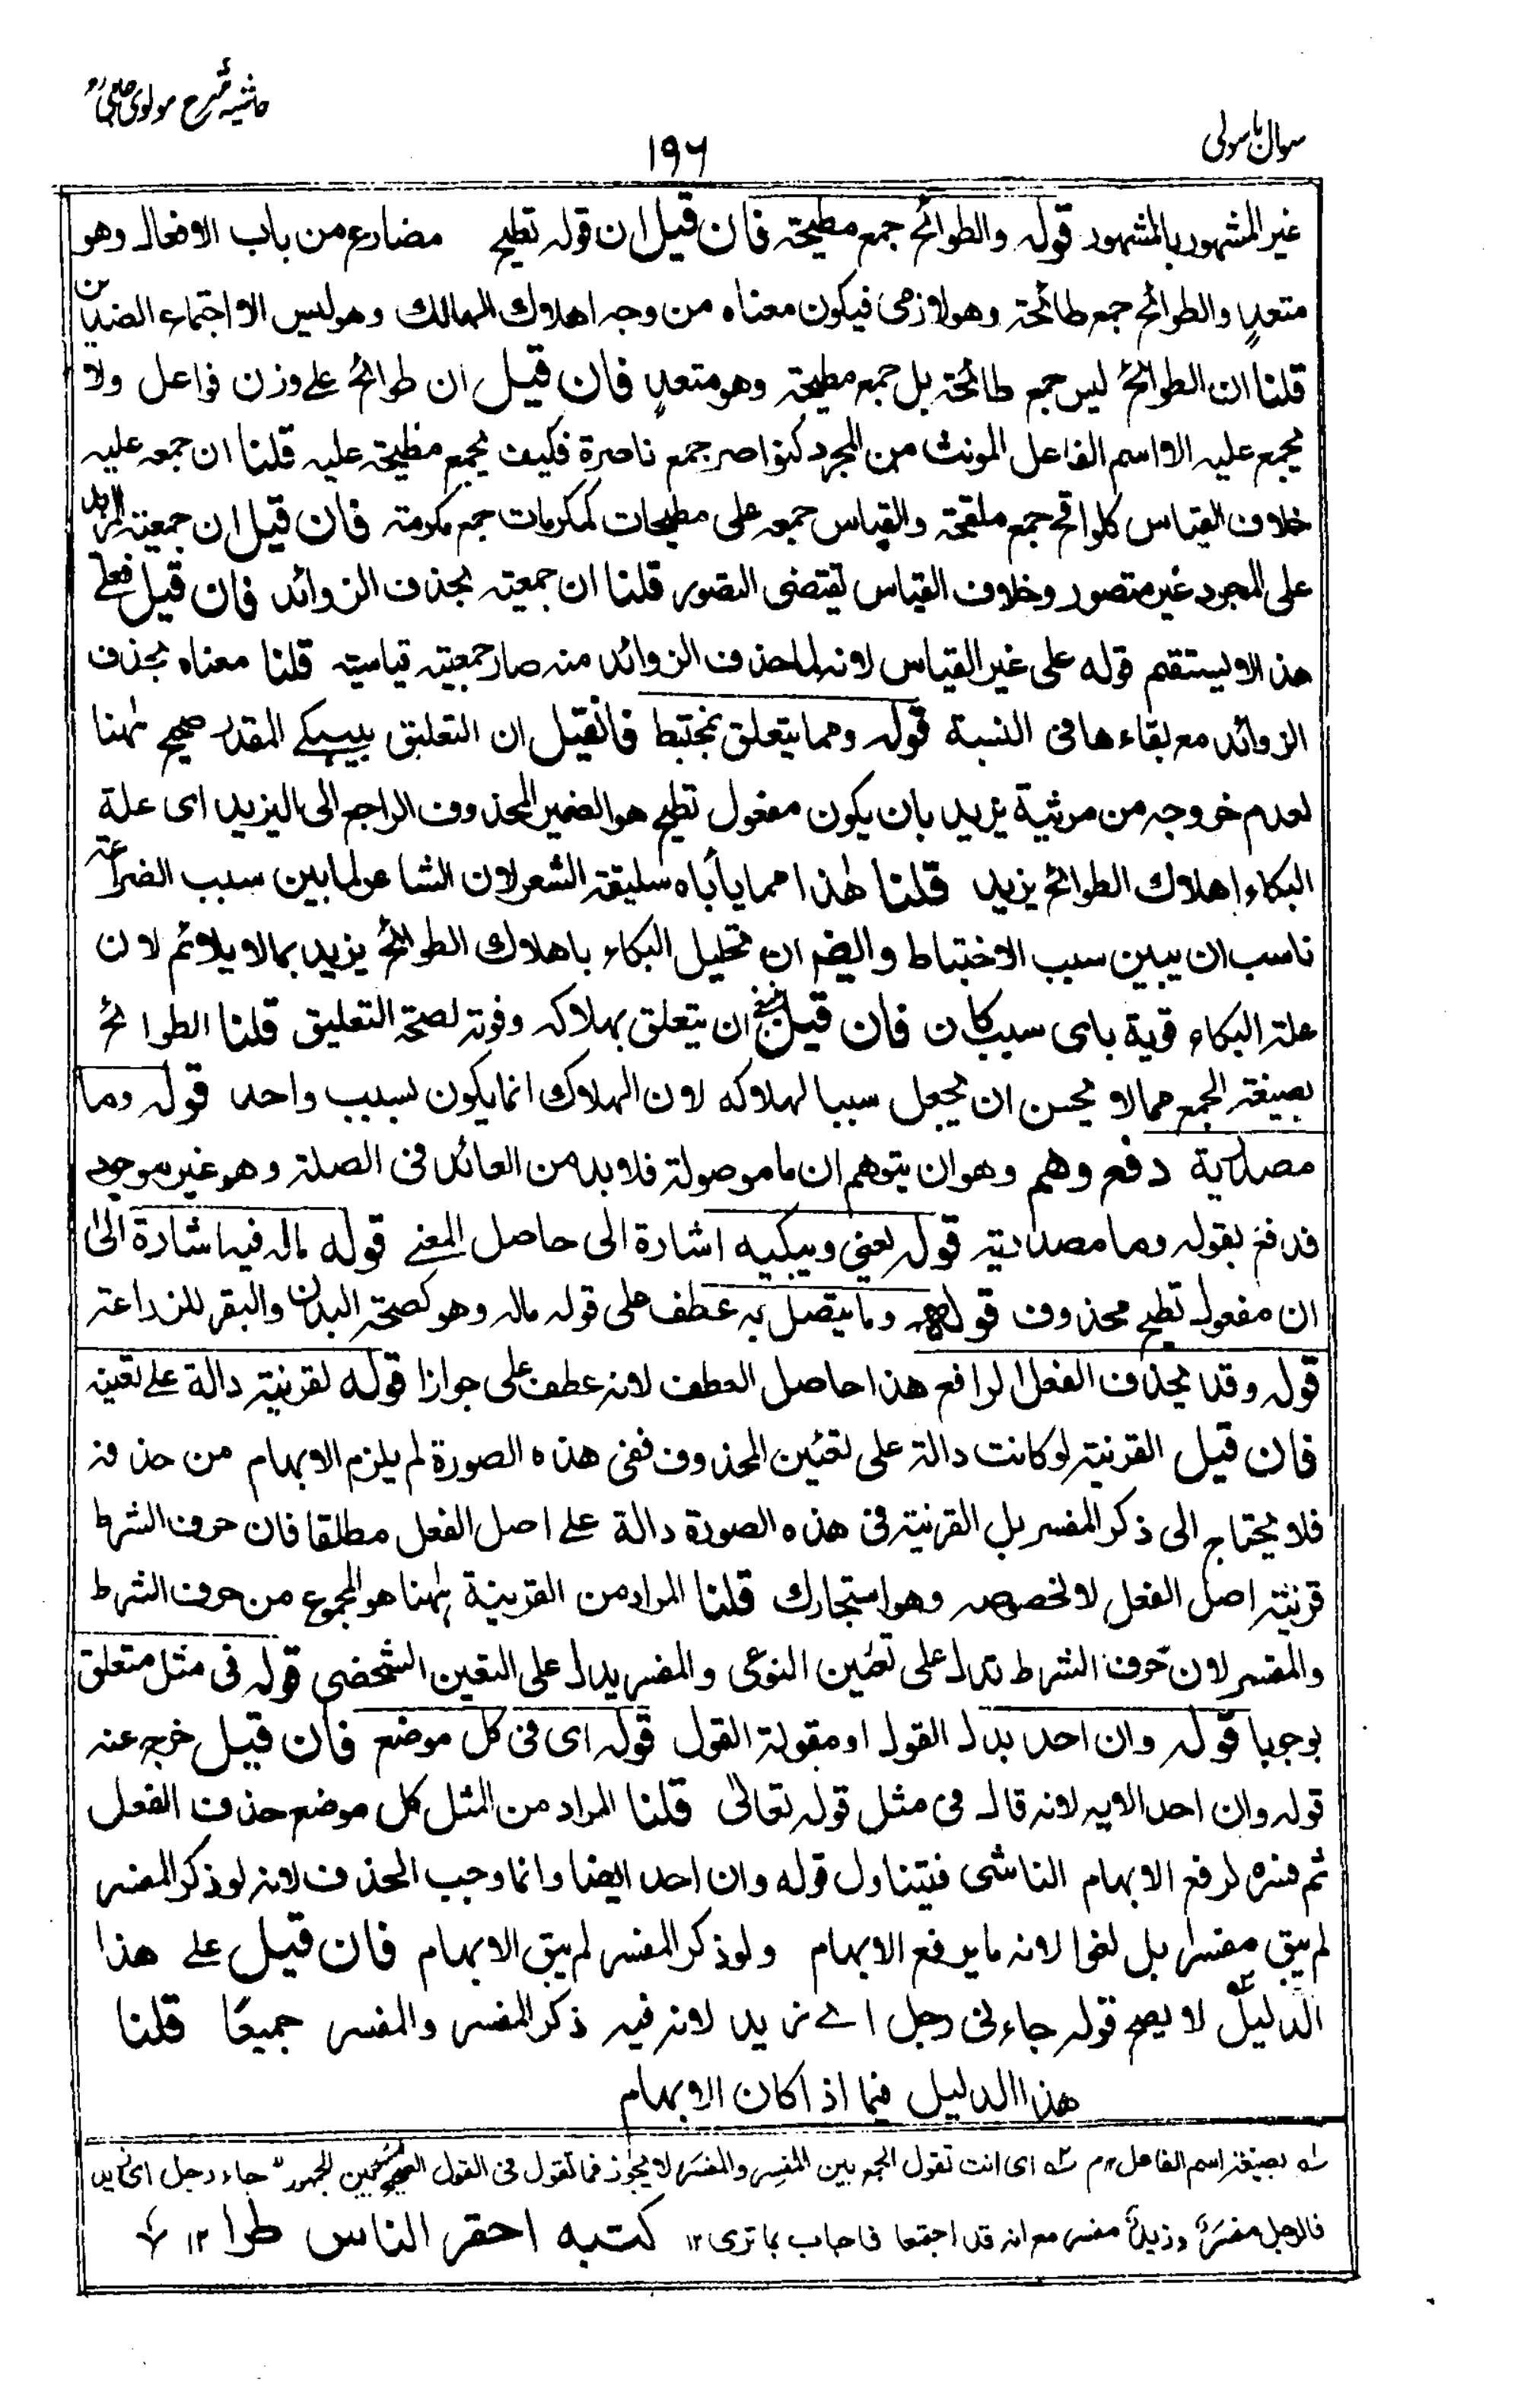 حاشیہ شرح مولوی جامی
سوال باسولی
۱۹۶
غير المشهور بالمشهور قوله والطوائح جمع مطيحة فان قيل ان قوله تطيح مضارع من باب الافعال وهو
متعدٍ والطوائح جمع طائحة وهو لازمى فيكون معناه من وجه اهلاك الهالك وهو ليس الا اجتماع الضدين
قلنا ان الطوائح ليس جمع طائحة بل جمع مطيحة وهو متعدٍ فان قيل ان طوائح على وزن فواعل ولا
يجمع عليه الا اسم الفاعل المونث من المجرد كنواصر جمع ناصرة فكيف يجمع مطيحة عليه قلنا ان جمعه عليه
خلاف القياس كلواقح جمع ملقحة والقياس جمعه على مطيحات كمكرمات جمع مكرمة فان قيل ان جمعية المزيد
على المجرد غير متصور وخلاف القياس يقتضى التصور قلنا ان جمعيته بحذف الزوائد فان قيل فعلى
هذا لا يستقيم قوله على غير القياس لانه لما حذف الزوائد منه صار جمعيته قياسيته قلنا معناه بحذف
الزوائد مع بقاءها فى النسبة قوله ومما يتعلق بمختبط فانقيل ان التعليق بيبكى المقدر صحيح ٰهنا
لعدم خروجه من مرثية يزيد بان يكون مفعول تطيح هو الضمير المحذوف الراجع الى اليزيد اى علة
البكاء اهلاك الطوائح يزيد قلنا هٰذا مما يأباه سليقة الشعر لان الشاعر لما بين سبب الضراعة
ناسب ان يبين سبب الاختباط وايضم ان تحليل البكاء باهلاك الطوائح يزيد بمالا يلائم لان
علة البكاء قوية باى سبب كان فان قيل ان يتعلق بهلاكه وفوته لصحة التعليق قلنا الطوائح
بصيغة الجمع ممالا يحسن ان يجعل سببا لهلاكه لان الهلاك انما يكون لسبب واحد قوله وما
مصدرية دفع وهم وهو ان يتوهم ان ما موصولة فلا بد من العائد فى الصلة وهو غير موجود
فدفع بقوله وما مصدرية قوله يعني ويبكيه اشارة الى حاصل المعنے قوله ماله فيه اشارة الى
ان مفعول تطيح محذوف قوله وما يتصل به عطف على قوله ماله وهو كصحة البدن والبقر للزراعة
قوله وقد يحذف الفعل الرافع هذا حاصل العطف لانه عطف على جوازا قوله لقرينة دالة على تعينه
فان قيل القرينة لو كانت دالة على تعيّن المحذوف ففى هذه الصورة لم يلزم الابهام من حذفه
فلا يحتاج الى ذكر المفسر بل القرينة فى هذه الصورة دالة على اصل الفعل مطلقا فان حرف الشرط
قرينة اصل الفعل لا لخصوصه وهو استجارك قلنا المراد من القرينة ٰهنا هو المجموع من حرف الشرط
والمفسر لان حرف الشرط تدل على تعيّن النوعى والمفسر يدل على التعين الشخصى قوله فى مثل متعلق
بوجوبا قوله وان احد بدل القول او مقولة القول قوله اى فى كل موضع فان قيل خرج عنه
قوله وان احد الايه لانه قال فى مثل قوله تعالىٰ قلنا المراد من المثل كل موضع حذف الفعل
ثم فسره لرفع الابهام الناشى فيتناول قوله وان احد ايضا وانما وجب الحذف لانه لو ذكر المفسر
لم يبق مفسرا بل لغوا لانه ما يرفع الابهام ولو ذكر المفسر لم يبق الابهام فان قيل على هذا
الدليل لا يصح قوله جاءنى رجل اے زيد لانه فيه ذكر المفسر والمفسر جميعًا قلنا
هذا الدليل فيما اذا كان الابهام
؎ بصيغة اسم الفاعل ۱۲ م ؎ اى انت تقول الجمع بين المفسِر والمفسَر لا يجوز فما تقول فى القول الجمهور جاء رجل اى زيد
فالرجل مفسَرٌ وزيدٌ مفسر مع انه قد اجتمعا فاجاب بما ترى ۱۲ كتبه احقر الناس طرا ۱۲